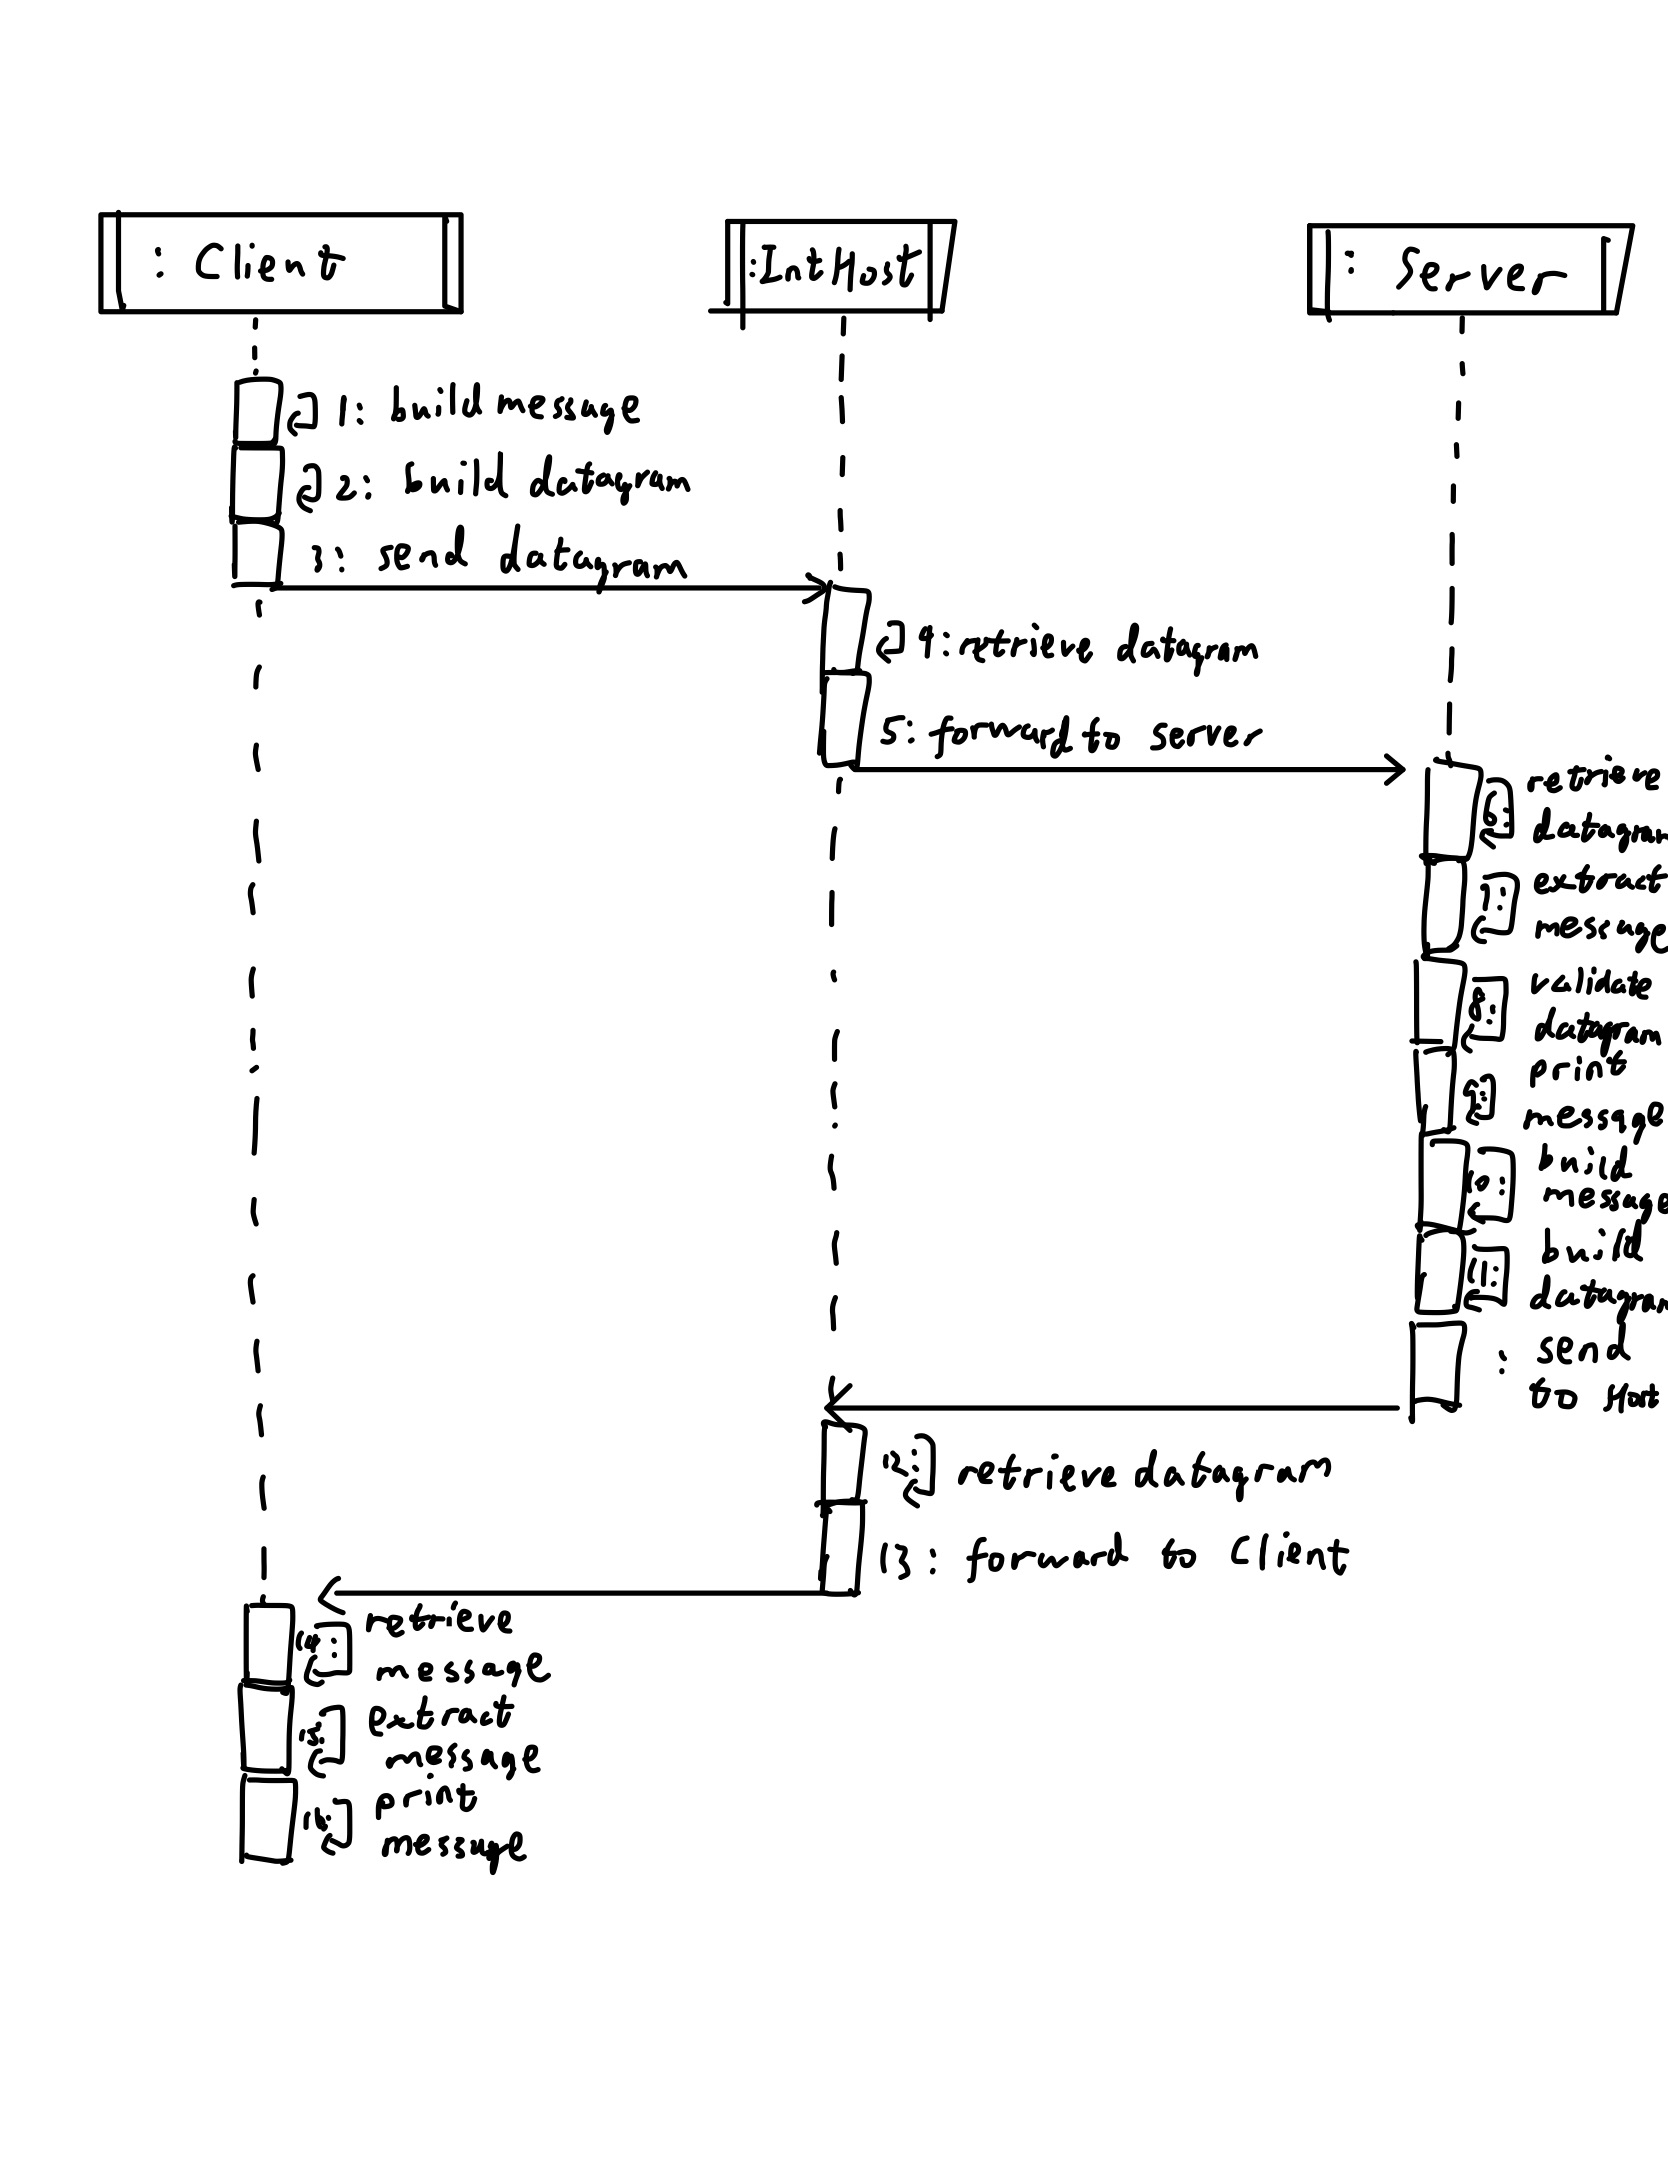 : Client
:IntHost
: Server
1: build message
2: build datagram
3: send datagram
4: retrieve datagram
5: forward to server
6: retrieve
datagram
7: extract
message
8: validate
datagram
9: print
message
10: build
message
11: build
datagram
: send
to Host
12: retrieve datagram
13: forward to Client
14: retrieve
message
15: extract
message
16: print
message